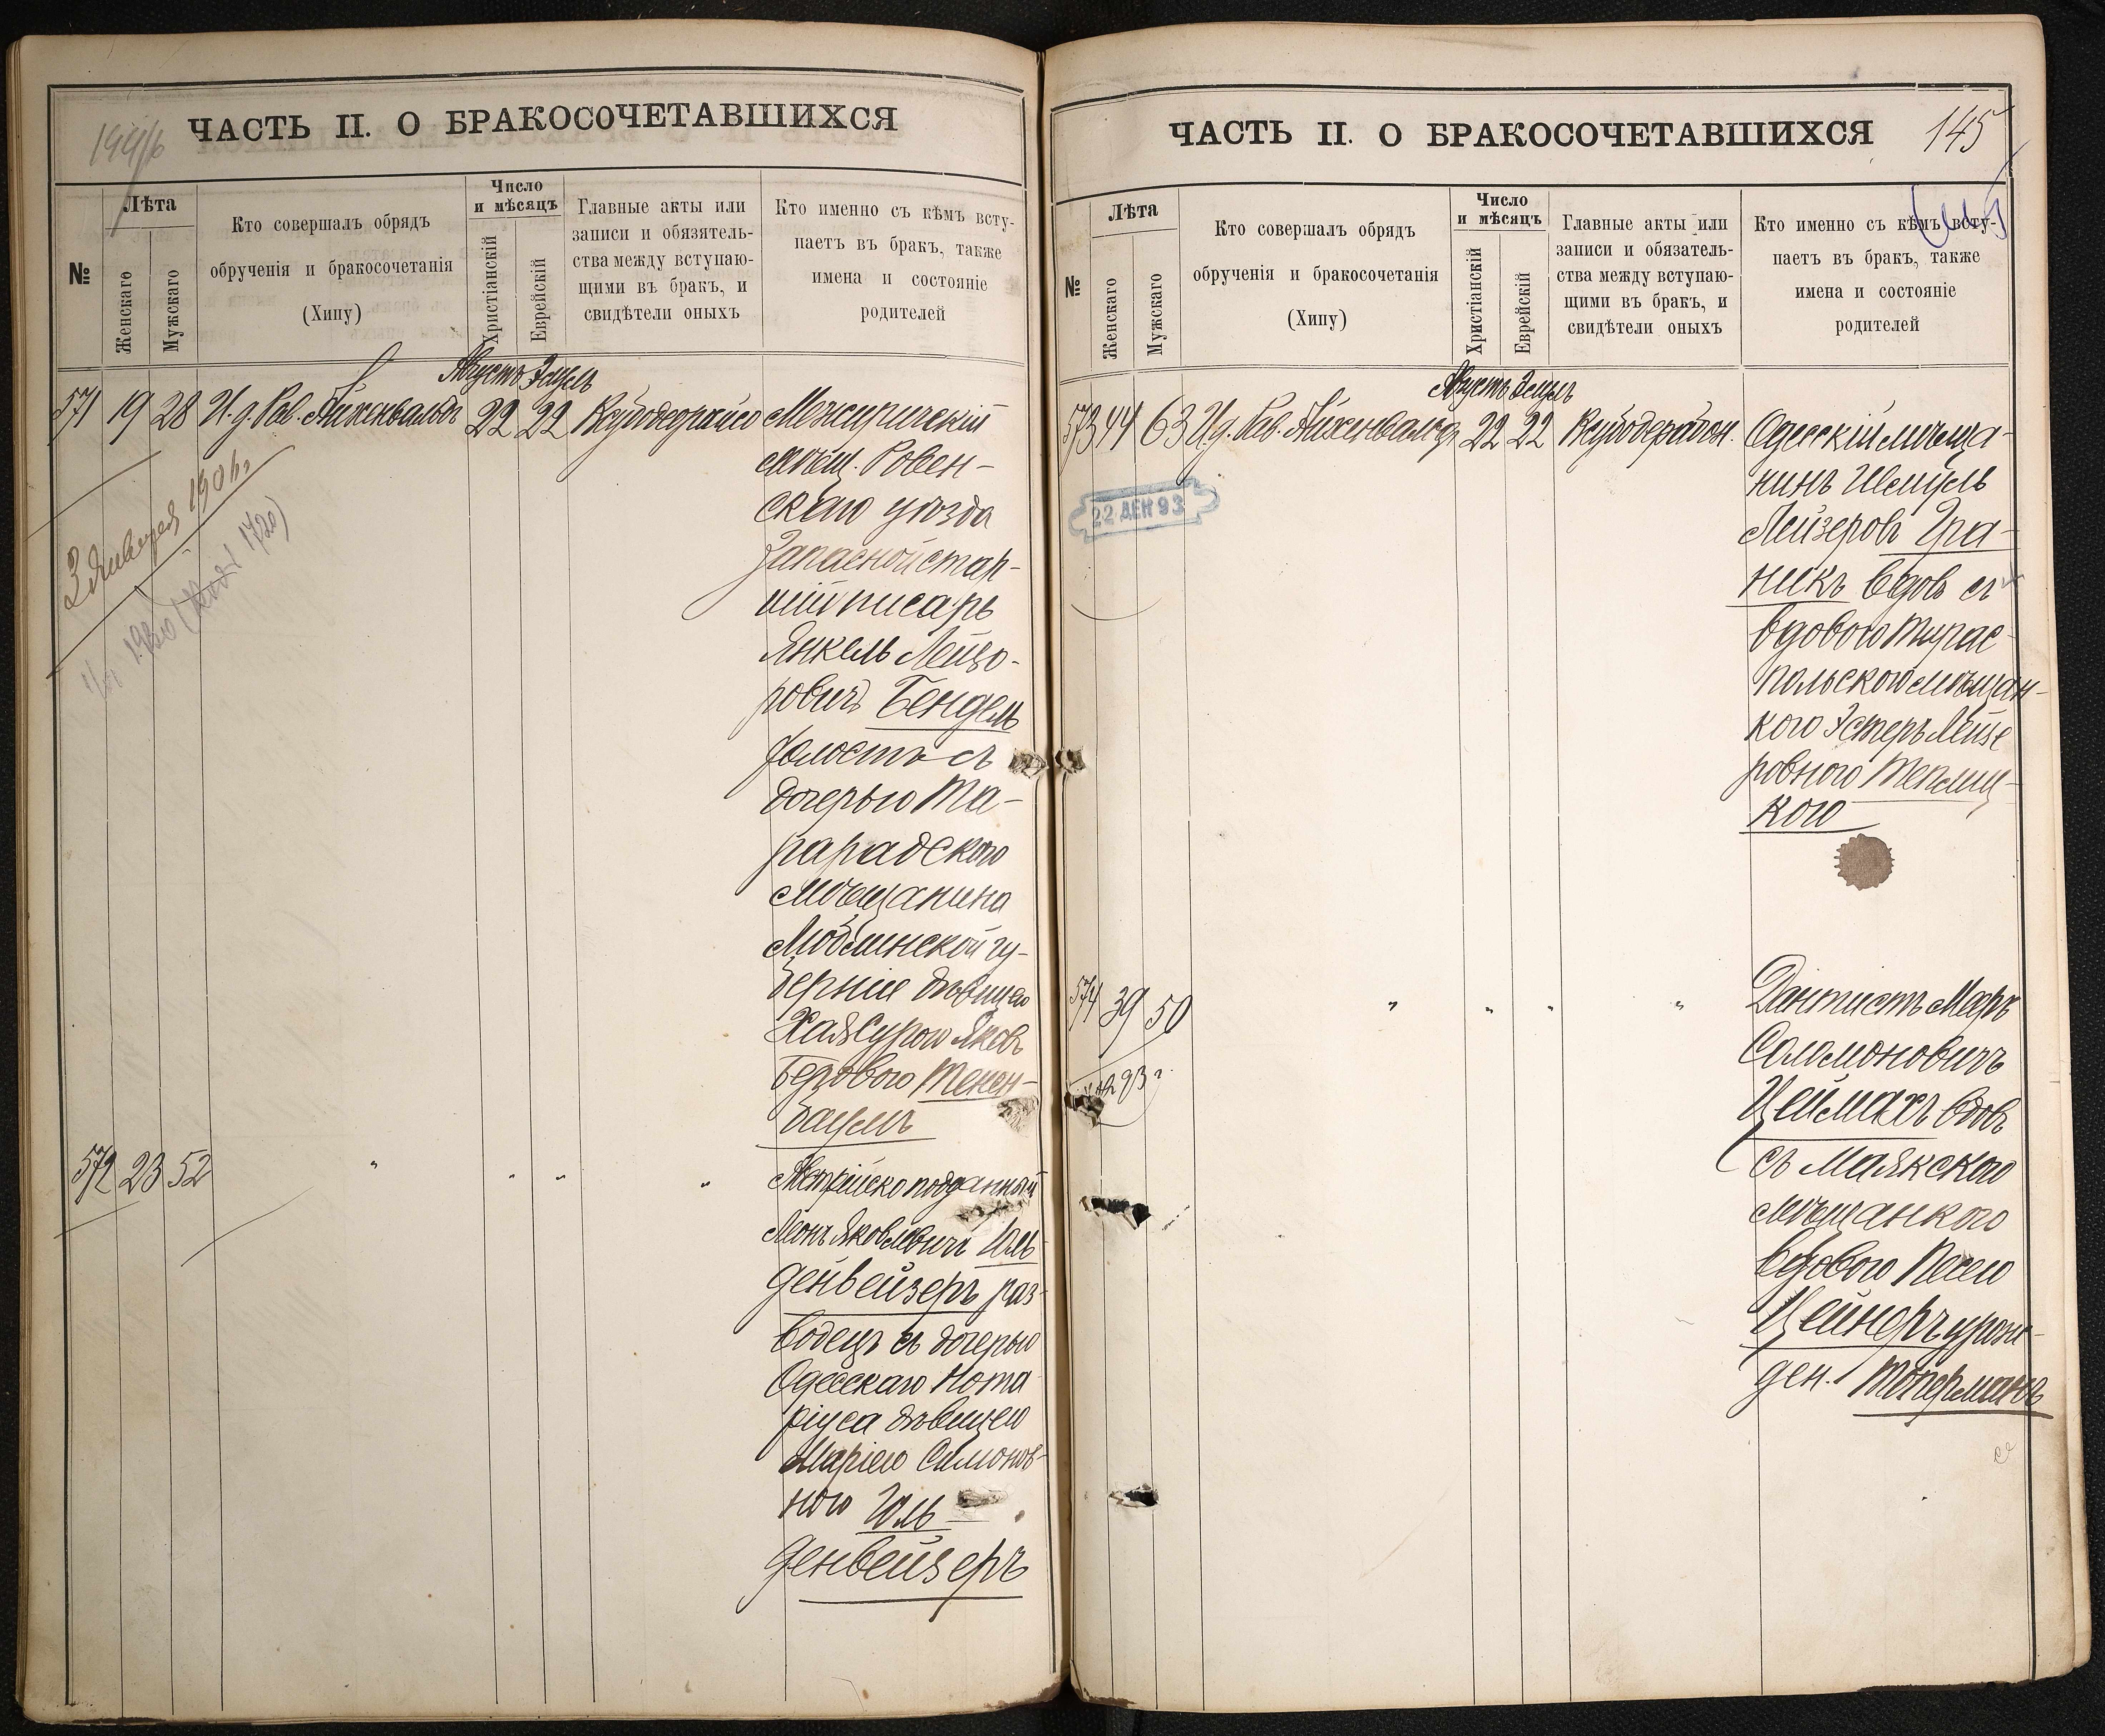 144/б
ЧАСТЬ II. О БРАКОСОЧЕТАВШИХСЯ
№
Лѣта
Женскаго
Мужскаго
Кто совершалъ обрядъ
обрученія и бракосочетанія
(Хипу)
Число
и мѣсяцъ
Христіанскій
Еврейскій
Главные акты или
записи и обязатель-
ства между вступаю-
щими въ бракъ, и
свидѣтели оныхъ
Кто именно съ кѣмъ всту-
паетъ въ бракъ, также
имена и состояніе
родителей
Августъ Элулъ
571 19 28 И. д. Рав. Айхенвальдъ 22 22
Межиричскій
мѣщ. Ровен-
скаго уѣзда
Запасной стар-
шій писарь
Янкель Лейзо-
ровичъ Бендель
холостъ съ
дочерью
мѣщанина
Люблинской гу-
берніи дѣвицею
Хая Сурою
Тенен-
баумъ
3 Января 1901 г.
572 23 52 " " " "
Австрійско подданный
Леонъ Яковлевичъ Голь
денвейзеръ раз-
водецъ съ дочерью
Одесскаго Нота
ріуса дѣвицею
Маріею Симонов-
ною Голь
денвейзеръ
ЧАСТЬ II. О БРАКОСОЧЕТАВШИХСЯ
145
№
Лѣта
Женскаго
Мужскаго
Кто совершалъ обрядъ
обрученія и бракосочетанія
(Хипу)
Число
и мѣсяцъ
Христіанскій
Еврейскій
Главные акты или
записи и обязатель-
ства между вступаю-
щими въ бракъ, и
свидѣтели оныхъ
Кто именно съ кѣмъ всту-
паетъ въ бракъ, также
имена и состояніе
родителей
Августъ Элулъ
573 44 63 И. д. Рав. Айхенвальдъ 22 22
Одесскій мѣща-
нинъ Шмуль
Лейзеровъ Гра-
никъ вдов съ
вдовою Тирас-
польскою мѣщан-
кою Эстеръ Лейзе
ровною Теплиц-
кою
22 ДЕК 93
574 39 50 " " " "
Дантистъ Меръ
Соломоновичъ
Цеймахъ вдовъ
съ Маякскою
мѣщанкою
вдовою Песею
Цейнеръ урож-
ден. Топерманъ